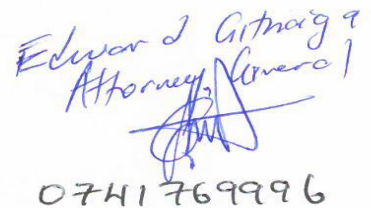 Edward Githaiga
Attorney General
0741769996